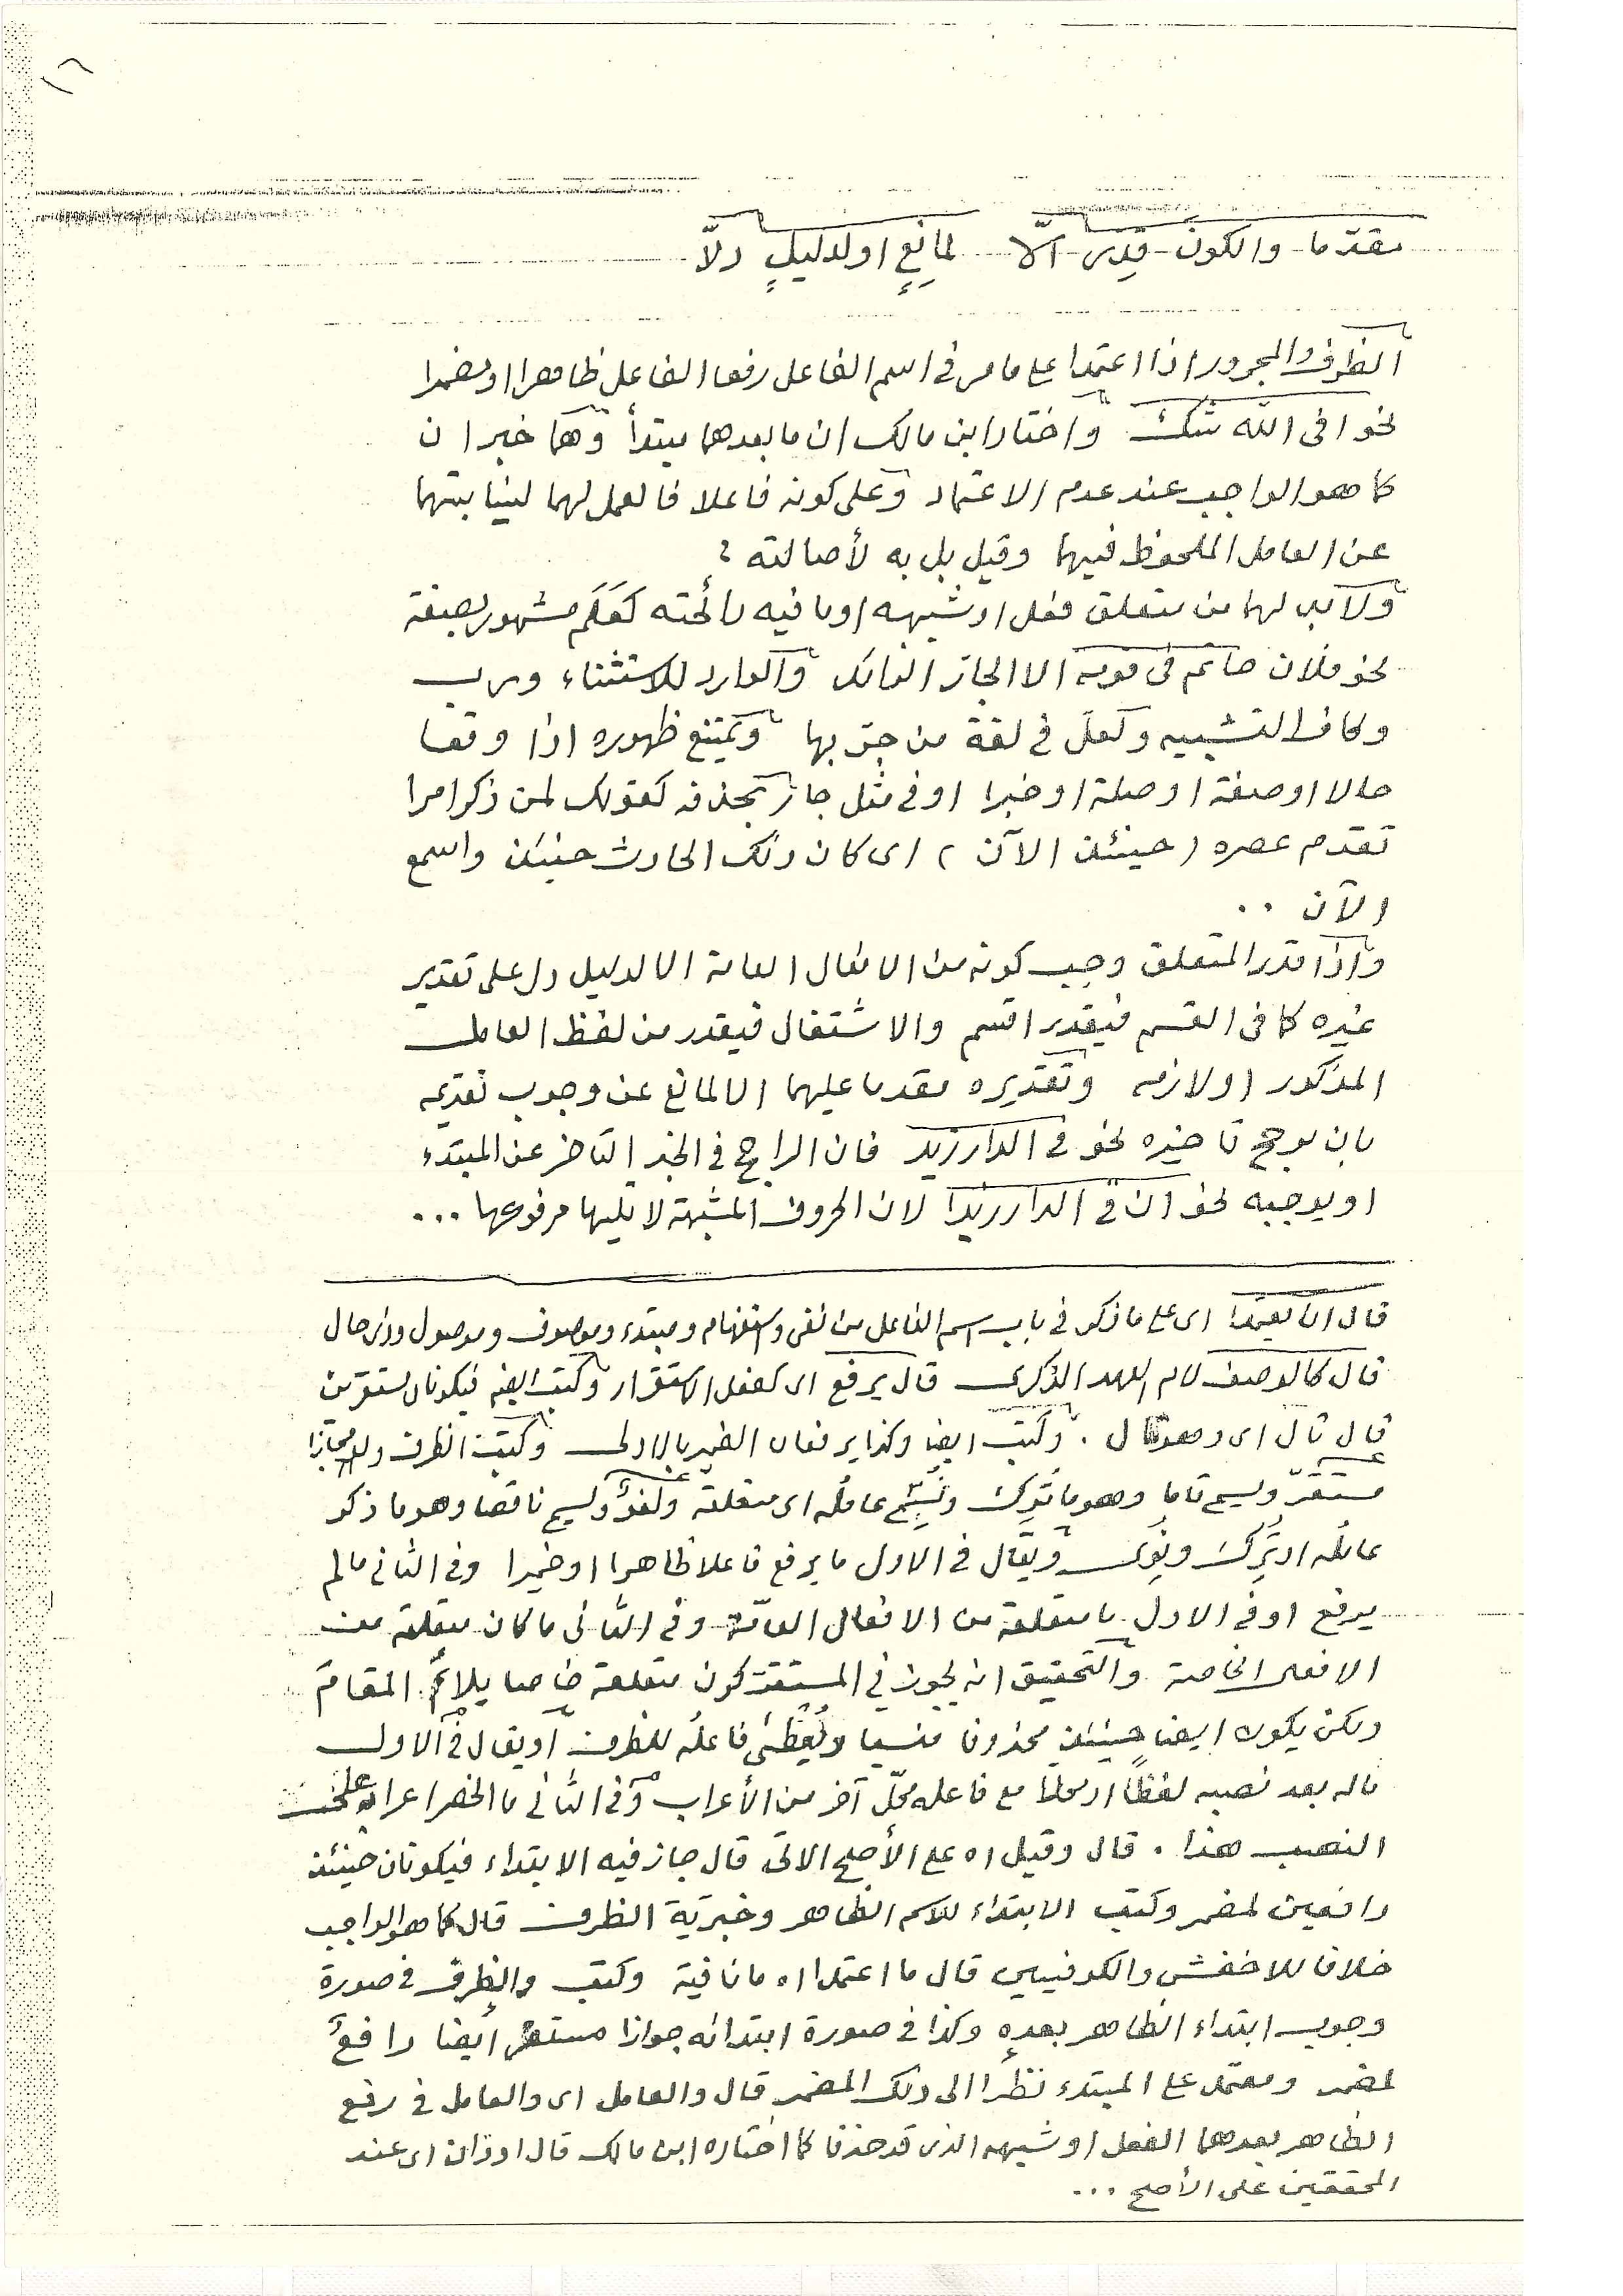 ١٦
مقدما والكون قدر الّا لمانعٍ او لدليلٍ دلّا
الظرف والمجرور اذا اعتمدا على ما مر في اسم الفاعل رفعا الفاعل ظاهرا او مضمرا
نحو افى الله شك واختار ابن مالك ان ما بعدهما مبتدأ وهما خبران
كما هو الواجب عند عدم الاعتماد وعلى كونه فاعلا فالعمل لهما لنيابتهما
عن العامل الملحوظ فيهما وقيل بل به لأصالته
ولابد لهما من متعلق فعل او شبهه او ما فيه رائحته كعلم مشهور بصفة
نحو فلان حاتم فى قومه الا الجار الزائد والوارد للاستثناء ورب
وكاف التشبيه ولعل في لغة من جرّ بها ويمتنع ظهوره اذا وقعا
حالا او صفة او صلة او خبرا او في مثل جاز بحذفه كقولك لمن ذكر امرا
تقدم عصره (حينئذ الآن) اى كان ذلك الحادث حينئذ واسمع
الآن ..
واذا قدر المتعلق وجب كونه من الافعال العامة الا لدليل دل على تقدير
غيره كما في القسم فيقدر اقسم والاشتغال فيقدر من لفظ العامل
المذكور او لازمه وتقديره مقدما عليهما الا لمانع عن وجوب تقديمه
بان يرجح تاخيره نحو في الدار زيد فان الراجح في الخبر التاخر عن المبتدء
او يوجبه نحو ان في الدار زيدا لان الحروف المشبهة لا يليها مرفوعها ...
قال ان يعتمدا اى على ما ذكر في باب اسم الفاعل من نفى واستفهام ومبتدء وموصوف وموصول وذى حال
قال كالوصف لام للعهد الذكرى قال يرفع اى كفعل الاستقرار وكتب ايضا فيكونان مستقرين
قال تال اى وهو تال . وكتب ايضا وكذا يرفعان الضمير بالاولى وكتب الظرف ولو مجازا
مستقرّ ويسمى تاما وهو ما ترك ونُسِيَ عامله اى متعلقه ولغو ويسمى ناقصا وهو ما ذكر
عامله او ترك ونوى ويقال في الاول ما يرفع فاعلا ظاهرا او ضميرا وفى الثانى ما لم
يرفع او في الاول ما متعلقه من الافعال العامّة وفى الثانى ما كان متعلقه من
الافعال الخاصة والتحقيق انه يجوز في المستقر كون متعلقه خاصا يلائم المقام
ولكن يكون ايضا حينئذ محذوفا منسيا ويُعْطَى فاعله للظرف او يقال في الاول
ماله بعد نصبه لفظًا او محلا مع فاعله محلّ آخر من الأعراب وفى الثانى ما انحصر اعرابه على
النصب هذا . قال وقيل اه على الأصح الاتى قال جاز فيه الابتداء فيكونان حينئذ
رافعين لمضمر وكتب الابتداء للاسم الظاهر وخبريّة الظرف قال كما هو الواجب
خلافا للاخفش والكوفيين قال ما اعتمدا اه ما نافية وكتب والظرف في صورة
وجوب ابتداء الظاهر بعده وكذا في صورة ابتدائه جوازا مستقر أيضا رافع
لمضمر ومعتمد على المبتدء نظرا الى ذلك المضمر قال والعامل اى والعامل في رفع
الظاهر بعدهما الفعل او شبهه الذى قد حذفا كما اختاره ابن مالك قال او ذان اى عند
المحققين على الأصح ...